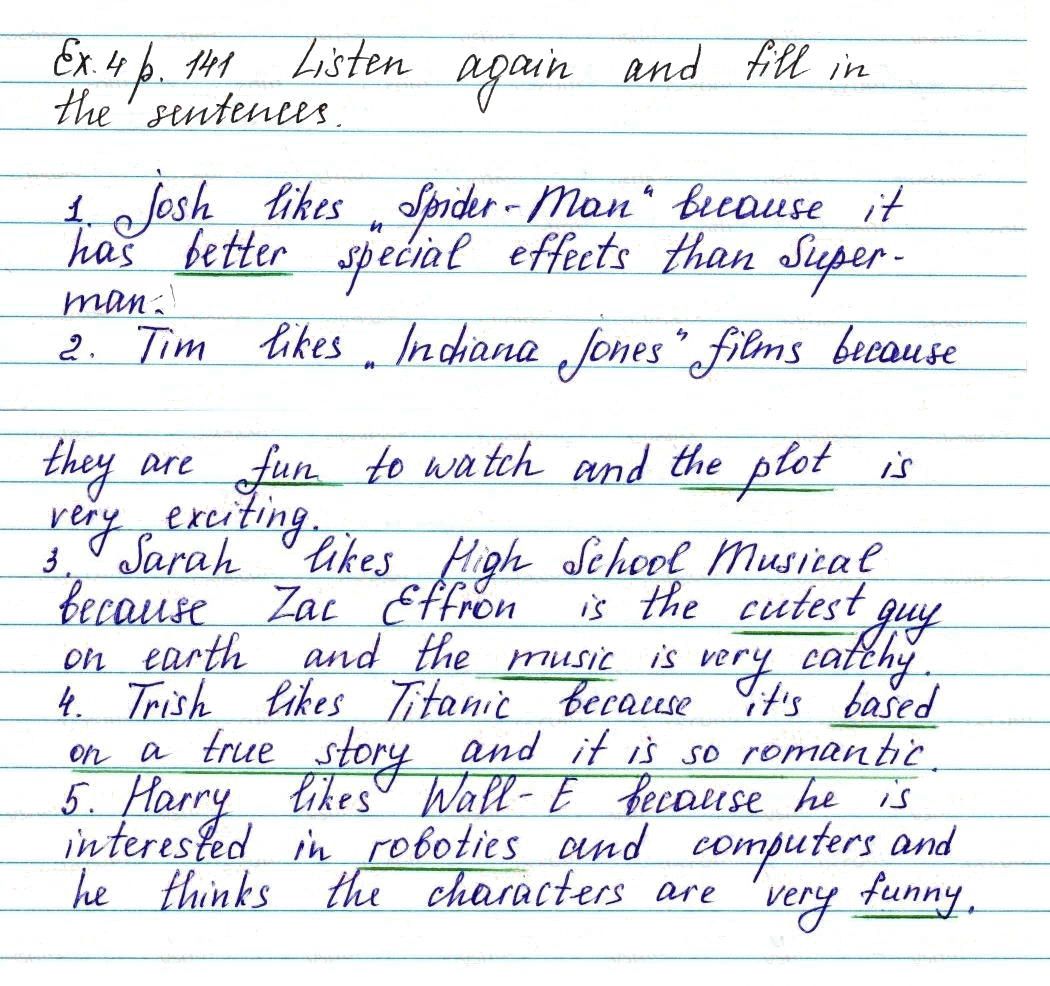 Ex. 4 p. 141 Listen again and fill in
the sentences.
1. Josh likes „Spider-Man“ because it
has better special effects than Super-
man.
2. Tim likes „Indiana Jones“ films because
they are fun to watch and the plot is
very exciting.
3. Sarah likes High School Musical
because Zac Effron is the cutest guy
on earth and the music is very catchy.
4. Trish likes Titanic because it's based
on a true story and it is so romantic.
5. Harry likes Wall-E because he is
interested in robotics and computers and
he thinks the characters are very funny.